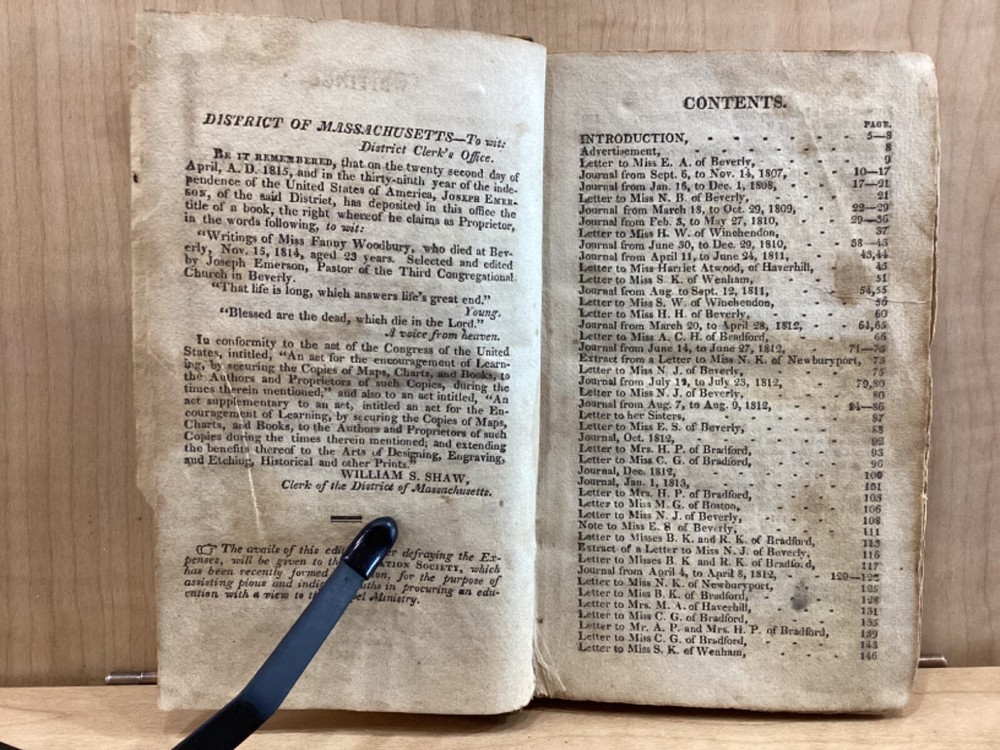 DISTRICT OF MASSACHUSETTS—To wit:
District Clerk's Office.
BE IT REMEMBERED, that on the twenty second day of
April, A. D. 1815, and in the thirty-ninth year of the inde-
pendence of the United States of America, JOSEPH EMER-
SON, of the said District, has deposited in this office the
title of a book, the right whereof he claims as Proprietor,
in the words following, to wit:
"Writings of Miss Fanny Woodbury, who died at Bev-
erly, Nov. 15, 1814, aged 23 years. Selected and edited
by Joseph Emerson, Pastor of the Third Congregational
Church in Beverly.
"That life is long, which answers life's great end."
Young.
"Blessed are the dead, which die in the Lord."
A voice from heaven.
In conformity to the act of the Congress of the United
States, intitled, "An act for the encouragement of Learn-
ing, by securing the Copies of Maps, Charts, and Books, to
the Authors and Proprietors of such Copies, during the
times therein mentioned;" and also to an act intitled, "An
act supplementary to an act, intitled an act for the En-
couragement of Learning, by securing the Copies of Maps,
Charts, and Books, to the Authors and Proprietors of such
Copies during the times therein mentioned; and extending
the benefits thereof to the Arts of Designing, Engraving,
and Etching, Historical and other Prints."
WILLIAM S. SHAW,
Clerk of the District of Massachusetts.
☞ The avails of this defraying the Ex-
penses, will be given to SOCIETY, which
has been recently formed for the purpose of
assisting pious and in procuring an edu-
cation with a view to Ministry.
CONTENTS.
PAGE.
INTRODUCTION, - - - - 5—8
Advertisement, - - - - 8
Letter to Miss E. A. of Beverly, - - - 9
Journal from Sept. 6, to Nov. 14, 1807, - - 10—17
Journal from Jan. 16, to Dec. 1, 1808, - - 17—21
Letter to Miss N. B. of Beverly, - - - 21
Journal from March 18, to Oct. 29, 1809, - - 22—29
Journal from Feb. 3, to May 27, 1810, - - 29—36
Letter to Miss H. W. of Winchendon, - - 37
Journal from June 30, to Dec. 29, 1810, - - 38—43
Journal from April 11, to June 24, 1811, - - 43,44
Letter to Miss Harriet Atwood, of Haverhill, - 45
Letter to Miss S. K. of Wenham, - - - 51
Journal from Aug. to Sept. 12, 1811, - - 54,55
Letter to Miss S. W. of Winchendon, - - 56
Letter to Miss H. H. of Beverly, - - - 60
Journal from March 20, to April 28, 1812, - - 64,65
Letter to Miss A. C. H. of Bradford, - - 66
Journal from June 14, to June 27, 1812, - - 71—73
Extract from a Letter to Miss N. K. of Newburyport, 73
Letter to Miss N. J. of Beverly, - - - 75
Journal from July 12, to July 23, 1812, - - 79,80
Letter to Miss N. J. of Beverly, - - - 80
Journal from Aug. 7, to Aug. 9, 1812, - - 84—86
Letter to her Sisters, - - - - 87
Letter to Miss E. S. of Beverly, - - - 88
Journal, Oct. 1812, - - - - 92
Letter to Mrs. H. P. of Bradford, - - - 93
Letter to Miss C. G. of Bradford, - - - 96
Journal, Dec. 1812, - - - - 100
Journal, Jan. 1, 1813, - - - - 101
Letter to Mrs. H. P. of Bradford, - - - 103
Letter to Miss M. G. of Boston, - - - 106
Letter to Miss N. J. of Beverly, - - - 108
Note to Miss E. S of Beverly, - - - 111
Letter to Misses B. K. and R. K. of Bradford, - 113
Extract of a Letter to Miss N. J. of Beverly, - 116
Letter to Misses B. K. and R. K. of Bradford, - 117
Journal from April 4, to April 8, 1812, - - 120—125
Letter to Miss N. K. of Newburyport, - - 125
Letter to Miss B. K. of Bradford, - - - 128
Letter to Mrs. M. A. of Haverhill, - - - 131
Letter to Miss C. G. of Bradford, - - - 135
Letter to Mr. A. P. and Mrs. H. P. of Bradford, - 139
Letter to Miss C. G. of Bradford, - - - 143
Letter to Miss S. K. of Wenham, - - - 146